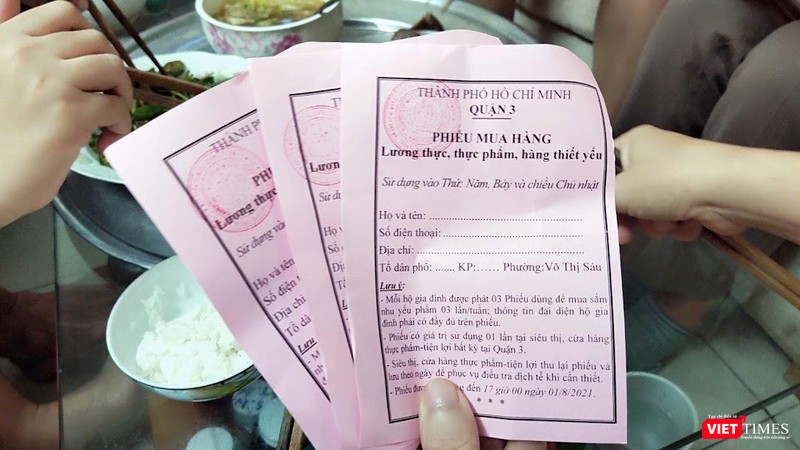 THÀNH PHỐ HỒ CHÍ MINH
QUẬN 3
PHIẾU MUA HÀNG
Lương thực, thực phẩm, hàng thiết yếu
Sử dụng vào Thứ: Năm, Bảy và chiều Chủ nhật
Họ và tên: ..........................................
Số điện thoại: ......................................
Địa chỉ: ..............................................
Tổ dân phố: ......., KP:...... Phường:Võ Thị Sáu
Lưu ý:
- Mỗi hộ gia đình được phát 03 Phiếu dùng để mua sắm
nhu yếu phẩm 03 lần/tuần; thông tin đại diện hộ gia
đình phải có đầy đủ trên phiếu.
- Phiếu có giá trị sử dụng 01 lần tại siêu thị, cửa hàng
thực phẩm-tiện lợi bất kỳ tại Quận 3.
- Siêu thị, cửa hàng thực phẩm-tiện lợi thu lại phiếu và
lưu theo ngày để phục vụ điều tra dịch tễ khi cần thiết.
- Phiếu đến 17 giờ 00 ngày 01/8/2021.
* * *
THÀNH PHỐ
PHI
Lương thực
Sử dụng vào
Họ và tên
Số điện
Địa chỉ
Tổ dân
Lưu
TH
Lương
Sử dụ
Họ v
Số đ
Địa
Tổ
Tạp chí điện tử
VIETTIMES